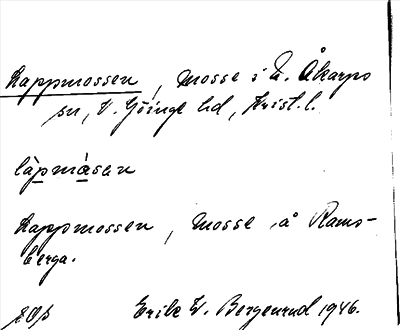 Lappmossen, mosse i N. Åkarps
sn, V. Göinge hd, Krist. l.
làpmåsen
Lappmossen, mosse å Rams-
berga.
Erik W. Bergenrud 1946.